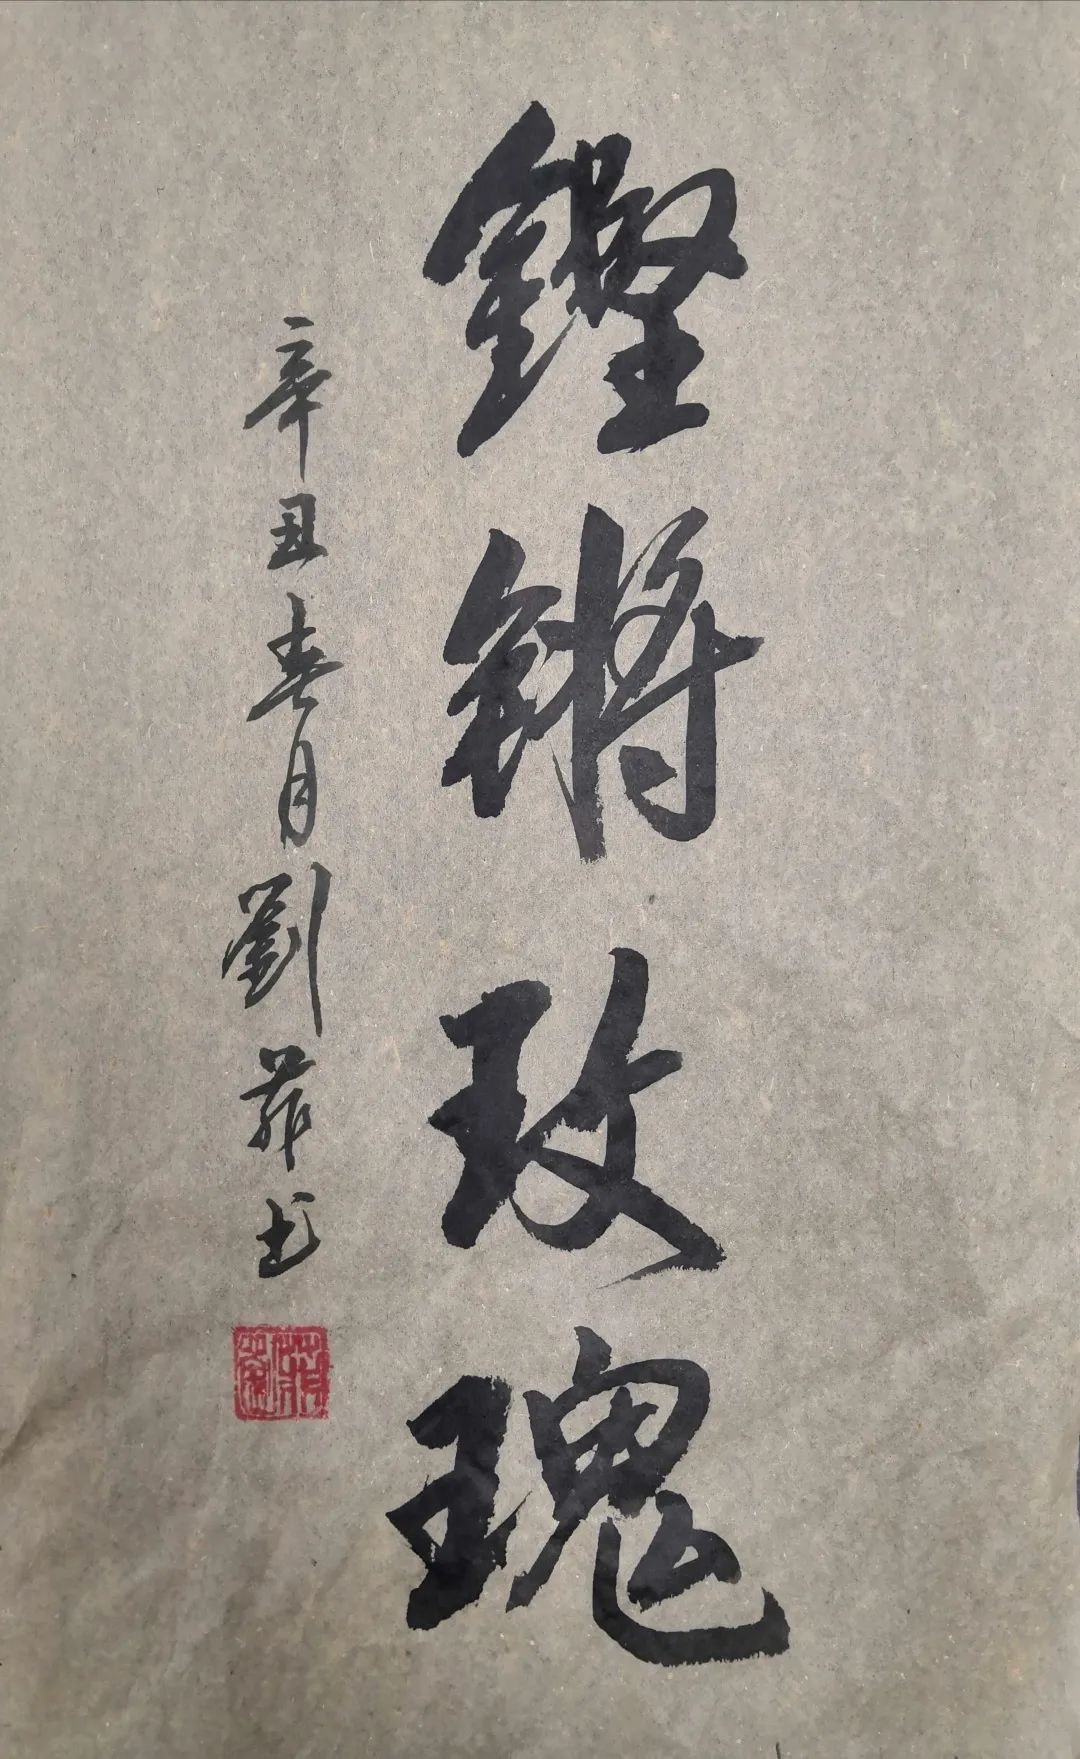 鏗锵玫瑰
辛丑春月劉菲书